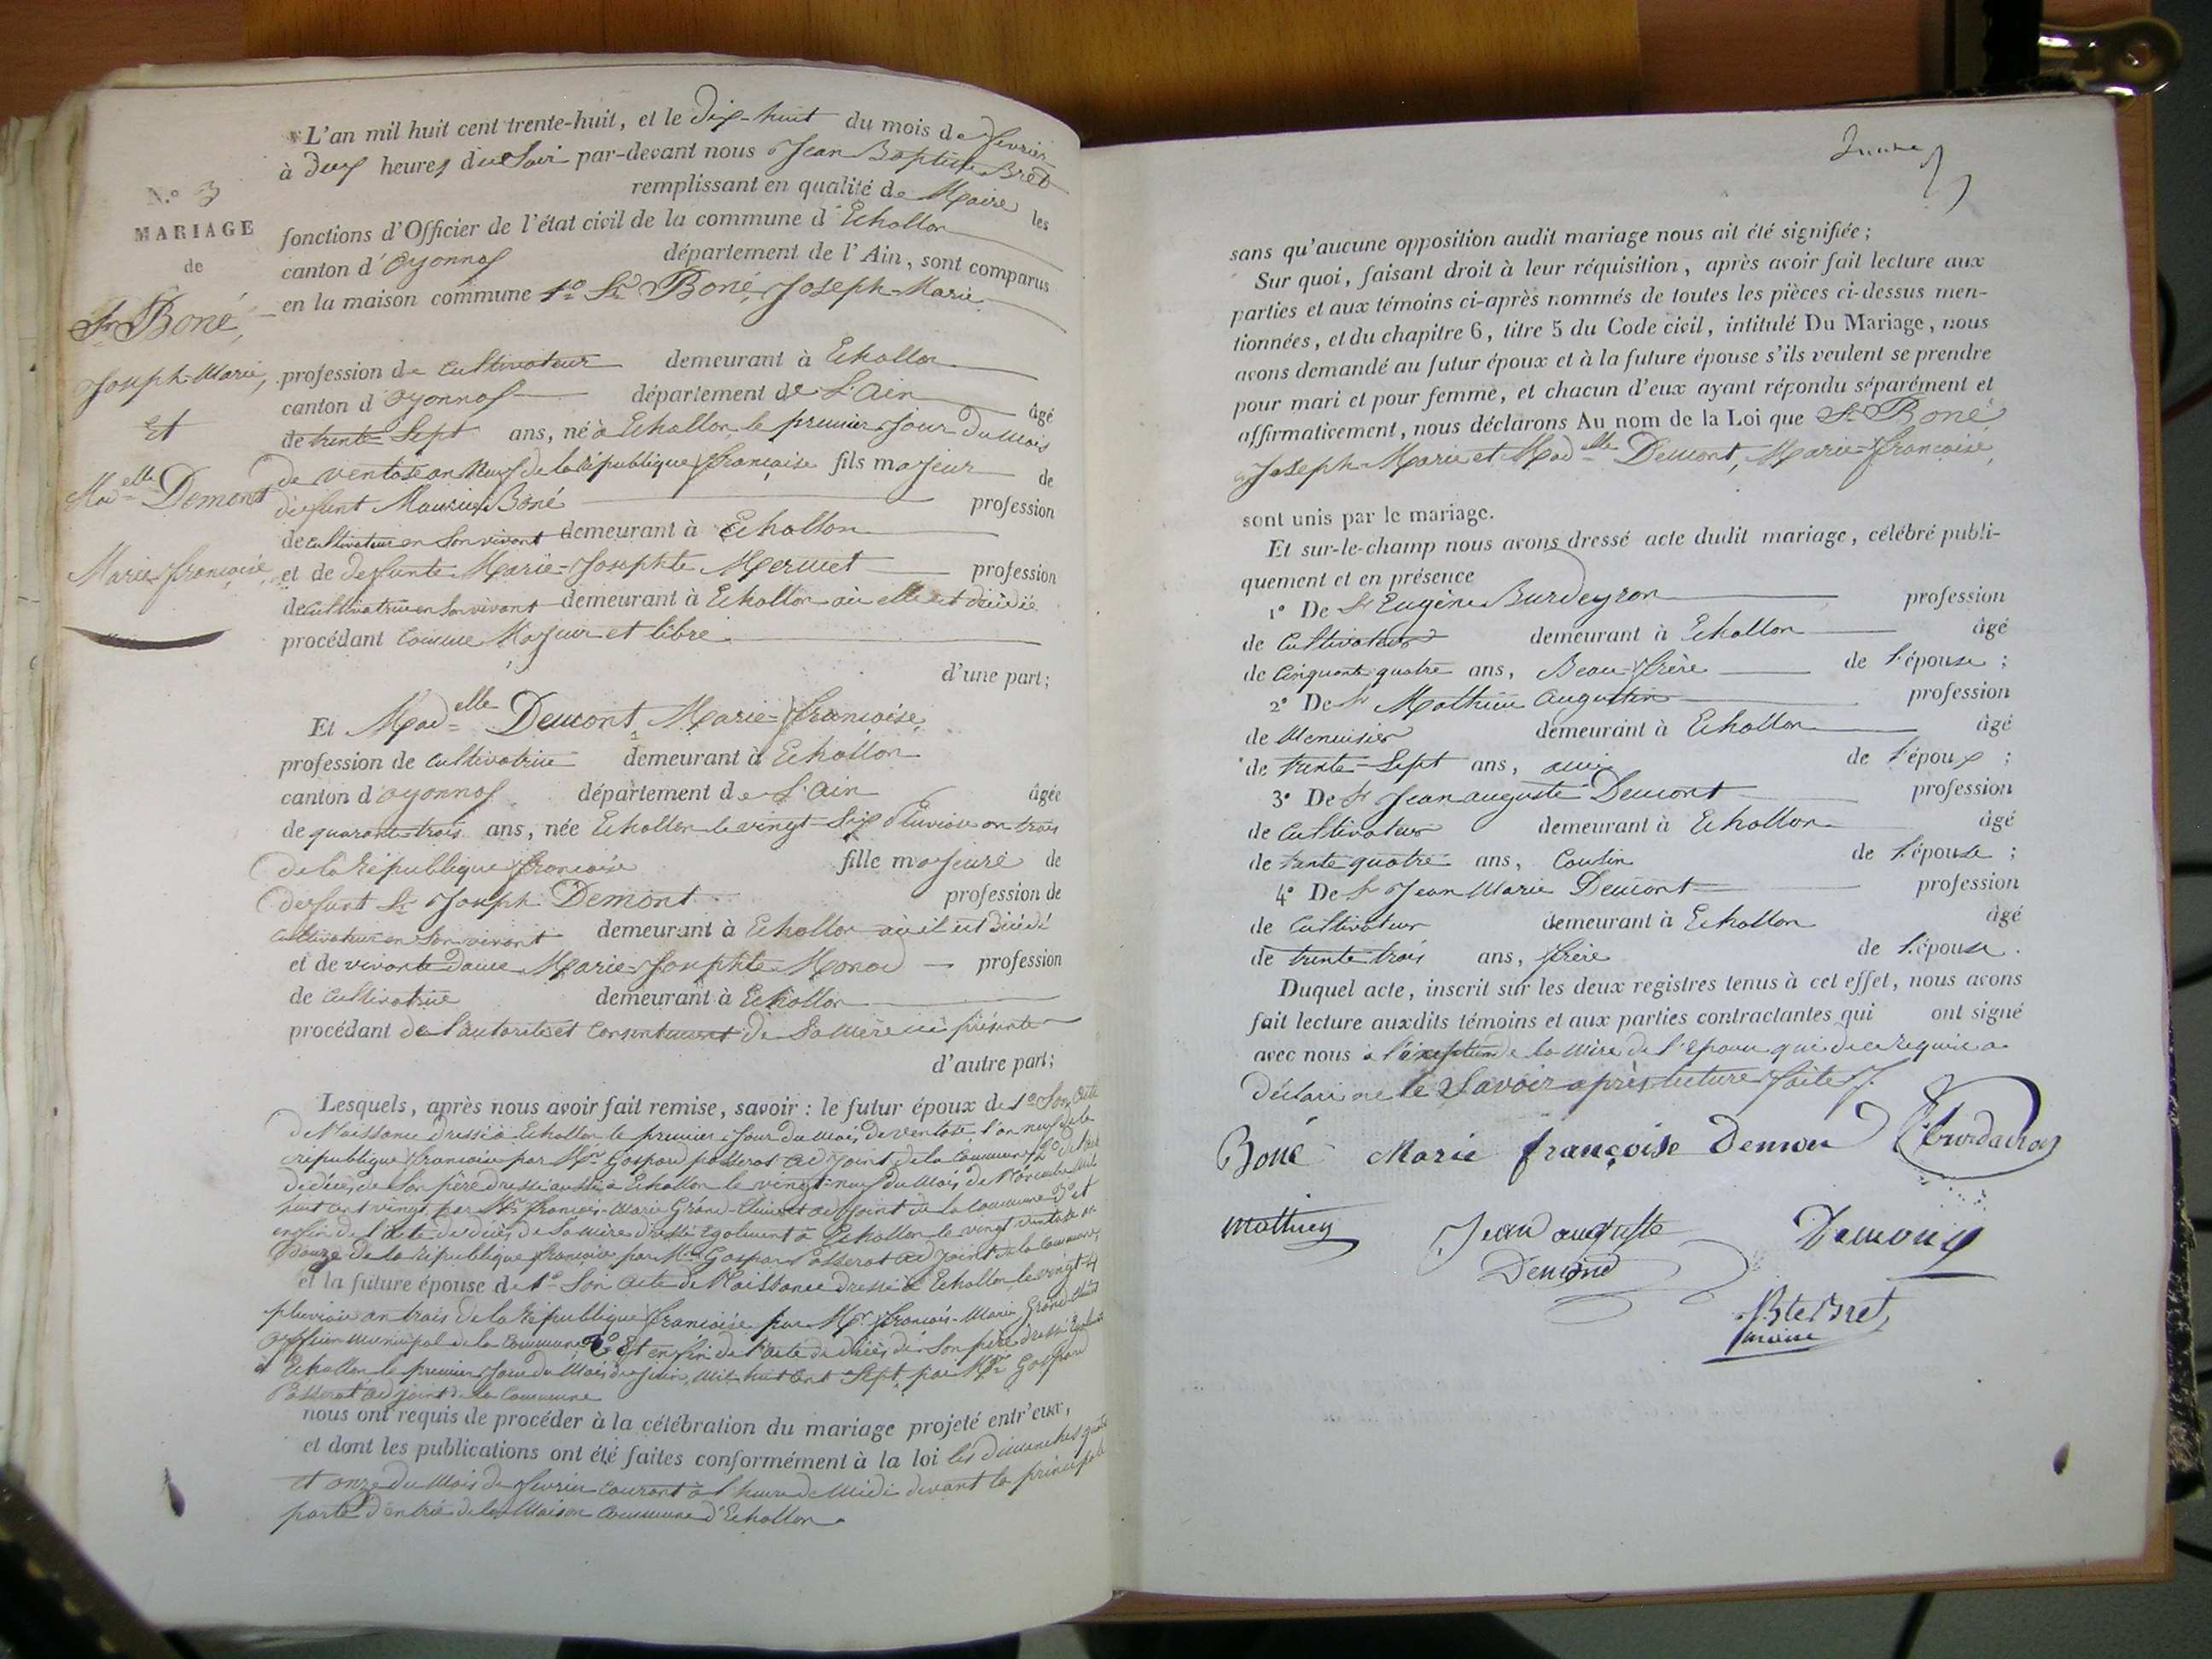 L'an mil huit cent trente-huit, et le Dix-huit du mois de fevrier
à deux heures du Soir par-devant nous Jean Baptiste Bret
remplissant en qualité de Maire les
fonctions d'Officier de l'état civil de la commune d'Echallon
canton d'Oyonnax département de l'Ain, sont comparus
en la maison commune 1º Sr Boné, Joseph-Marie
N.º 3
MARIAGE
de
Sr Boné,
Joseph-Marie,
Et
Madelle Demont
Marie-françoise,
profession de Cultivateur demeurant à Echallon
canton d'Oyonnax département de L'Ain âgé
de trente Sept ans, né à Echallon le premier Jour du Mois
de Ventose an Neuf de la République française fils majeur de
deffunt Maurice Boné profession
de cultivateur en Son vivant demeurant à Echallon
et de deffunte Marie-Josephte Mermet profession
de cultivatrice en Son vivant demeurant à Echallon où elle est décédée
procédant Comme Majeur et libre
d'une part;
Et Madelle Demont Marie-françoise
profession de Cultivatrice demeurant à Echallon
canton d'oyonnax département de L'Ain âgée
de quarante trois ans, née Echallon le vingt-Six Pluviose an trois
de la République françoise fille majeure de
deffunt Sr Joseph Demont profession de
Cultivateur en Son vivant demeurant à Echallon où il est Décédé
et de vivante Dame Marie-Josephte Monod profession
de Cultivatrice demeurant à Echallon
procédant de l'autorité et Consentement de Sa Mère ici présente
d'autre part;
Lesquels, après nous avoir fait remise, savoir: le futur époux de 1º Son Acte
de Naissance dressé à Echallon le premier Jour du Mois de ventose l'an neuf de la
république française par Mr Gaspard passerat Adjoint de la Commune 2º
de décès de Son père dressé aussi à Echallon le vingt-neuf du Mois de Novembre Mil
huit cent vingt par Mr françois-Marie Grand-Clément adjoint de la Commune 3º et
enfin de l'acte de décès de Sa Mère dressé Egalement à Echallon le vingt Ventose an
Douze de la république française par Mr Gaspard Passerat adjoint de la Commune
et la future épouse de 1º Son Acte de Naissance dressé à Echallon le vingt-
pluviose an trois de la République françoise par Mr françois-Marie Grand-
officier municipal de la Commune 2º Et enfin de l'acte de décès de Son père dressé Egalement
à Echallon le premier Jour du Mois de Juin Mil huit Cent Sept, par Mr Gaspard
Passerat adjoint de la Commune
nous ont requis de procéder à la célébration du mariage projeté entr'eux,
et dont les publications ont été faites conformément à la loi les dimanches quatre
et onze du Mois de fevrier Courant à l'heure de Midi devant la principale
porte d'entrée de la Maison Commune d'Echallon
sans qu'aucune opposition audit mariage nous ait été signifiée;
Sur quoi, faisant droit à leur réquisition, après avoir fait lecture aux
parties et aux témoins ci-après nommés de toutes les pièces ci-dessus men-
tionnées, et du chapitre 6, titre 5 du Code civil, intitulé Du Mariage, nous
avons demandé au futur époux et à la future épouse s'ils veulent se prendre
pour mari et pour femme, et chacun d'eux ayant répondu séparément et
affirmativement, nous déclarons Au nom de la Loi que Sr Boné
Joseph-Marie et Madelle Demont, Marie-françoise
sont unis par le mariage.
Et sur-le-champ nous avons dressé acte dudit mariage, célébré publi-
quement et en présence
1º De Sr Eugène Burdeyron profession
de Cultivateur demeurant à Echallon âgé
de Cinquante quatre ans, Beau-frère de l'épouse;
2º De Sr Mathieu Augustin profession
de Menuisier demeurant à Echallon âgé
de trente-Sept ans, ami de l'époux;
3º De Sr Jean auguste Demont profession
de Cultivateur demeurant à Echallon âgé
de trente quatre ans, Cousin de l'épouse;
4º De Sr Jean Marie Demont profession
de Cultivateur demeurant à Echallon âgé
de trente trois ans, frère de l'épouse.
Duquel acte, inscrit sur les deux registres tenus à cet effet, nous avons
fait lecture auxdits témoins et aux parties contractantes qui ont signé
avec nous à l'exeption de la Mère de l'Epouse qui de ce requise a
Déclaré ne le Savoir après lecture faite
Boné Marie françoise Demon
Mathieu Jean auguste Demond
Bte Bret,
maire